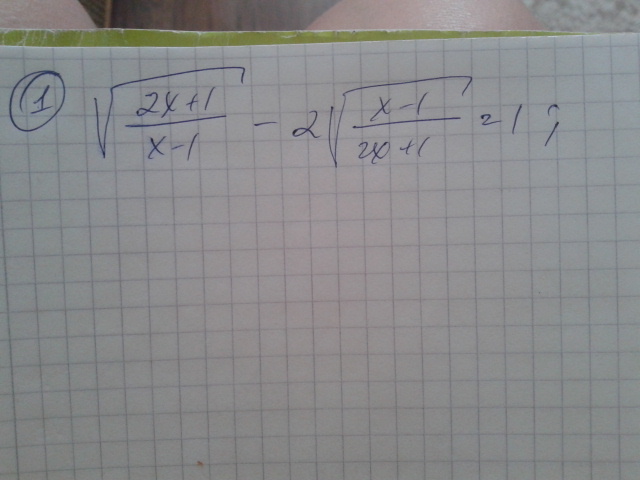 ① √((2x+1)/(x-1)) - 2√((x-1)/(2x+1)) = 1;